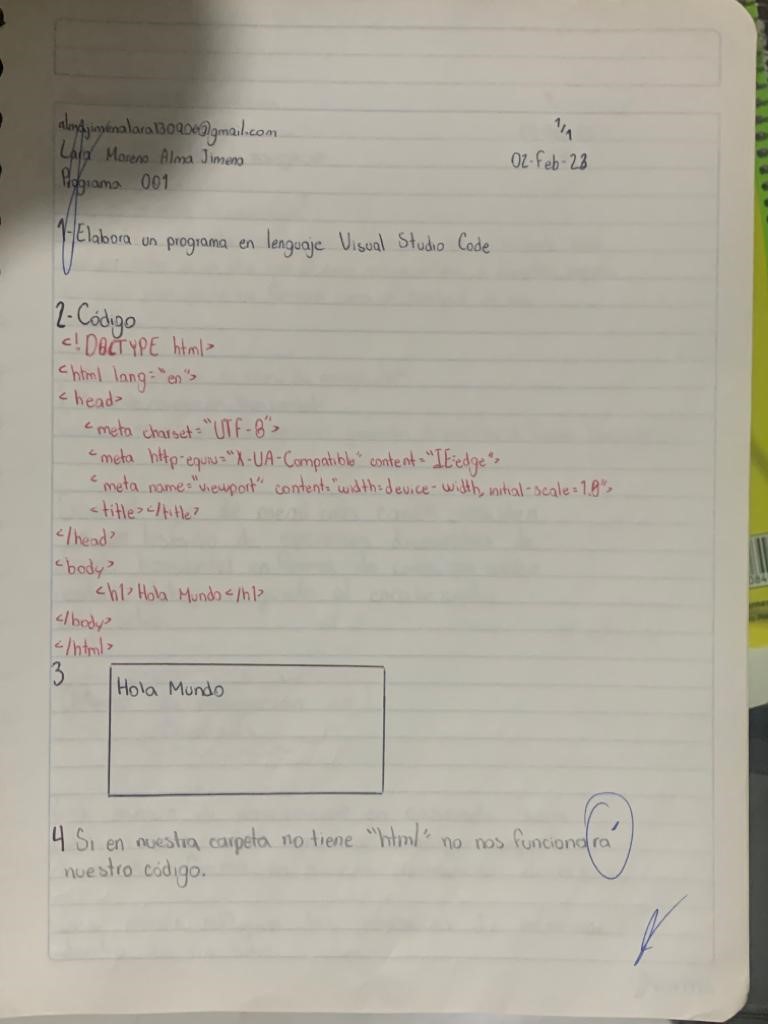 almajimenalara130906@gmail.com
1/1
Lara Moreno Alma Jimena
02-Feb-23
Programa 001
1-Elabora un programa en lenguaje Visual Studio Code
2-Código
<!DOCTYPE html>
<html lang="en">
<head>
<meta charset="UTF-8">
<meta http-equiv="X-UA-Compatible" content="IE=edge">
<meta name="viewport" content="width=device-width, initial-scale=1.0">
<title></title>
</head>
<body>
<h1>Hola Mundo</h1>
</body>
</html>
3
Hola Mundo
4 Si en nuestra carpeta no tiene "html" no nos funcionará
nuestro código.